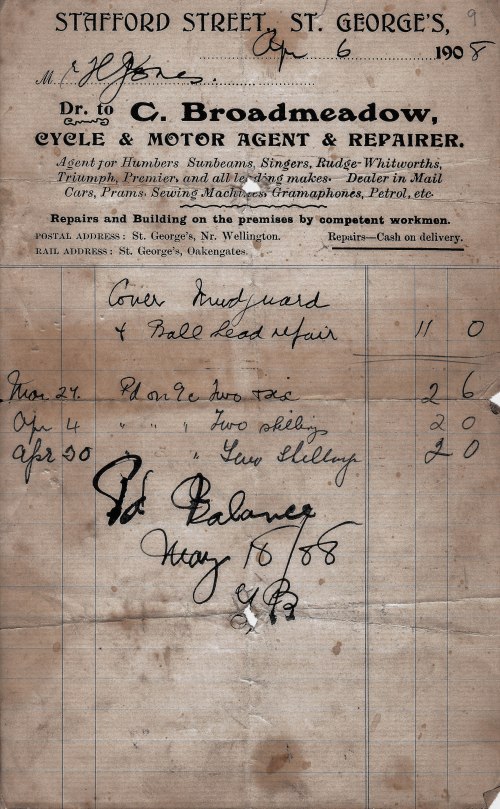 9
STAFFORD STREET, ST. GEORGE'S,
Apr 6 1908
M. r H Jones.
Dr. to C. Broadmeadow,
CYCLE & MOTOR AGENT & REPAIRER.
Agent for Humbers Sunbeams, Singers, Rudge-Whitworths,
Triumph, Premier, and all leading makes. Dealer in Mail
Cars, Prams, Sewing Machines, Gramaphones, Petrol, etc.
Repairs and Building on the premises by competent workmen.
POSTAL ADDRESS: St. George's, Nr. Wellington. Repairs—Cash on delivery.
RAIL ADDRESS: St. George's, Oakengates.
Cover Mudguard
& Ball head repair 11 0
Mar 27. Pd on a/c Two & six 2 6
Apr 4 " " " Two shillings 2 0
Apr 30 " " Two Shillings 2 0
Pd Balance
May 18/08
B